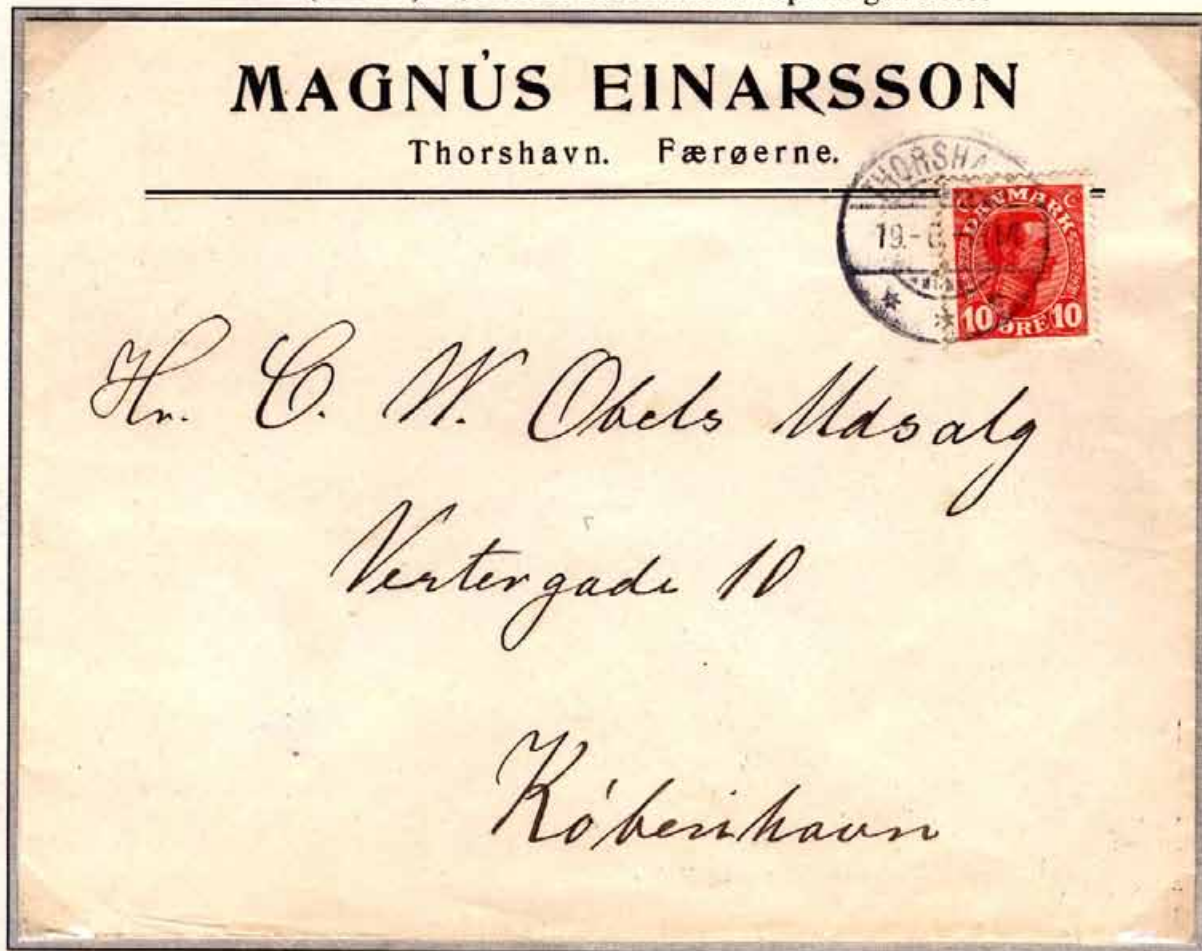 MAGNÚS EINARSSON
Thorshavn. Færøerne.
THORSHA
19.-6.
DANMARK
10 ØRE 10
Hr. C. W. Obels Udsalg
Vestergade 10
København